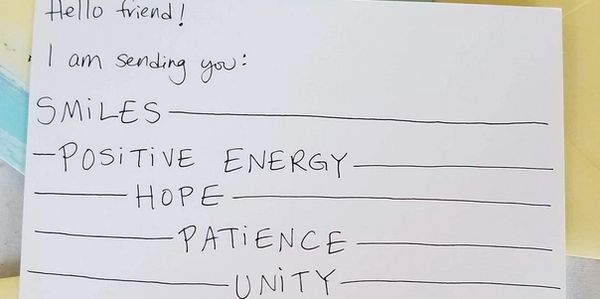 Hello friend!
I am sending you:
SMiLES
POSiTiVE ENERGY
HOPE
PATiENCE
UNiTY